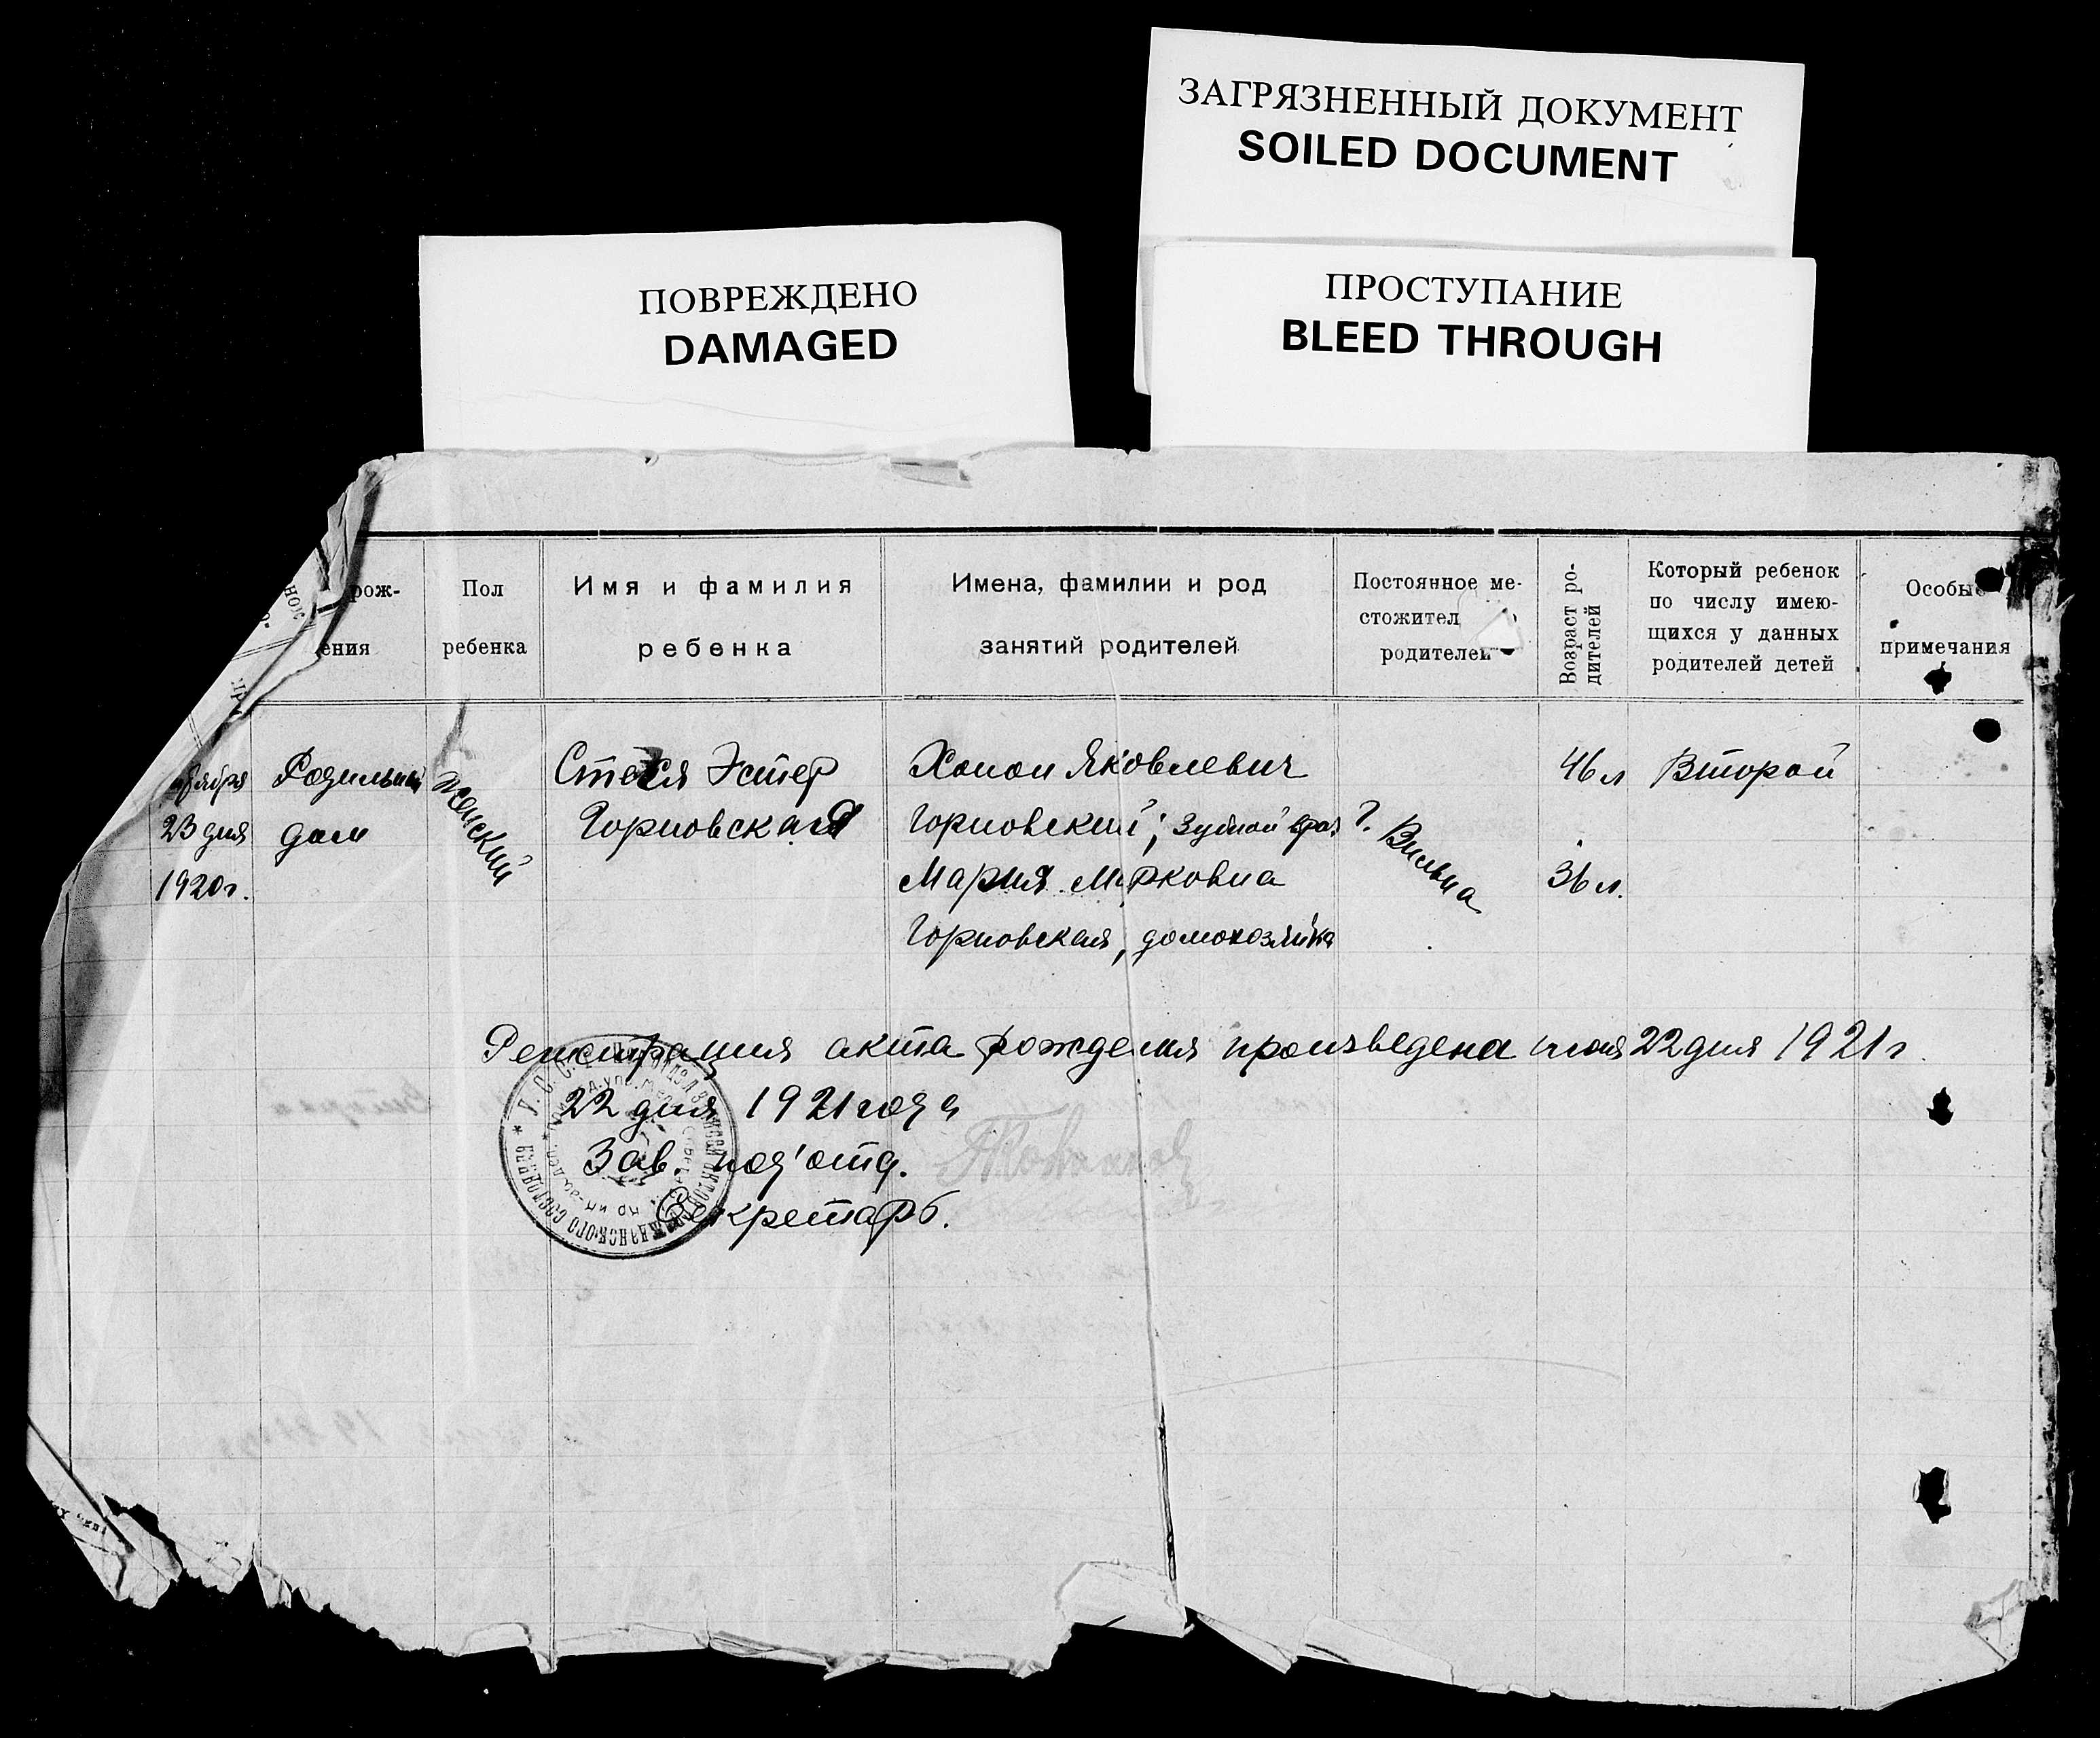 ЗАГРЯЗНЕННЫЙ ДОКУМЕНТ
SOILED DOCUMENT
ПОВРЕЖДЕНО
DAMAGED
ПРОСТУПАНИЕ
BLEED THROUGH
рож-
ения
Пол
ребенка
Имя и фамилия
ребенка
Имена, фамилии и род
занятий родителей
Постоянное ме-
стожител
родителей
Возраст ро-
дителей
Который ребенок
по числу имею-
щихся у данных
родителей детей
Особые
примечания
23 дня
1920 г.
Родильный
дом
женский
Эстер
Горновская
Хонон Яковлевич
Горновский; зубной врач
Мария Мерковна
Горновская, домохозяйка
г. Вильна
46 л
36 л.
Второй
Регистрация акта рождения произведена июля 22 дня 1921 г.
22 дня 1921 года
Зав. под'отд.
Секретарь.